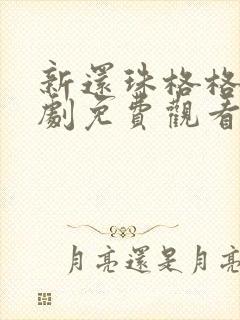 新還珠格格
劇免費觀看
月亮還是月亮